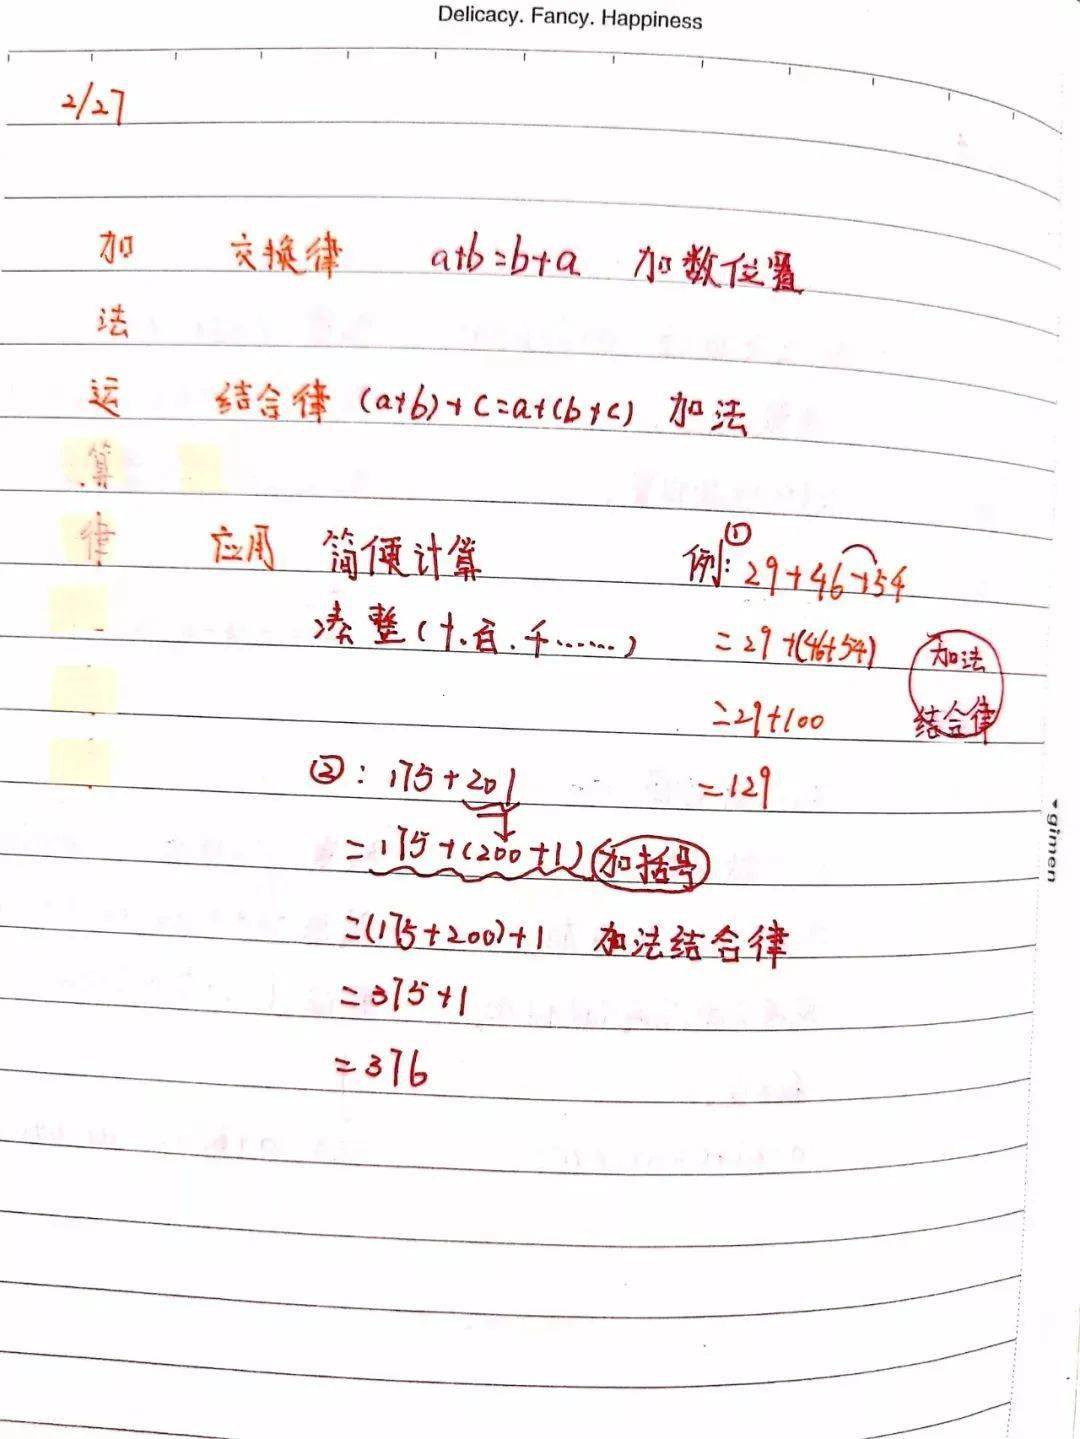 Delicacy. Fancy. Happiness
2/27
加法运算律
交换律 a+b=b+a 加数位置
结合律 (a+b)+c=a+(b+c) 加法
应用 简便计算
凑整(十.百.千……)
例:① 29+46+54
=29+(46+54) 加法
=29+100 结合律
=129
②:175+201
=175+(200+1) 加括号
=(175+200)+1 加法结合律
=375+1
=376
gimen